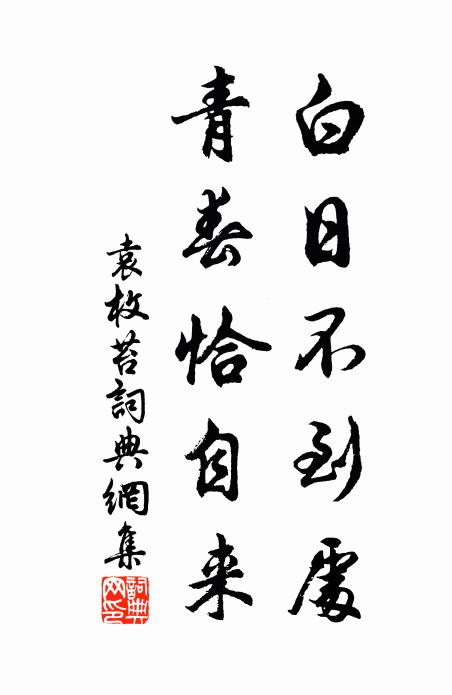 白日不到處
青春恰自来
袁枚苔詞典網集
詞典网印